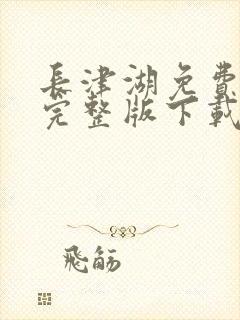 長津湖免費
完整版下載
飛觞